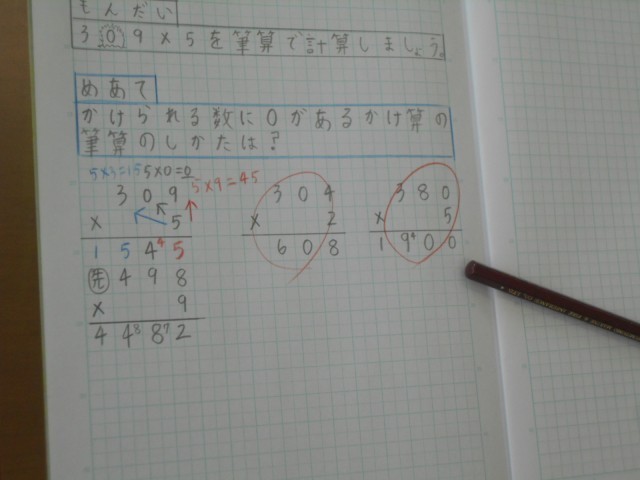 もんだい
309×5を筆算で計算しましょう。
めあて
かけられる数に0があるかけ算の
筆算のしかたは?
5×3=15 5×0=0
5×9=45
309
× 5
154⁴5
304
× 2
608
380
× 5
19⁴00
先 498
× 9
44⁸8⁷2